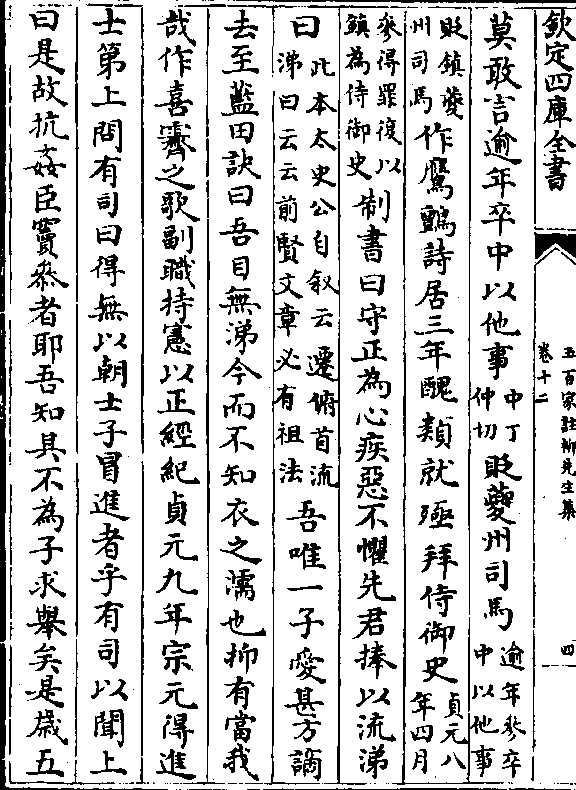 欽定四庫全書
五百家註柳先生集
卷十二
四
莫敢言逾年卒中以他事中丁仲切貶夔州司馬逾年參卒中以他事
貶鎮夔州司馬作鷹鸇詩居三年醜類就殛拜侍御史貞元八年四月
參得罪復以鎮為侍御史制書曰守正為心疾惡不懼先君捧以流涕
曰此本太史公自叙云遷俯首流涕曰云云前賢文章必有祖法吾唯一子愛甚方謫
去至藍田訣曰吾目無涕今而不知衣之濡也抑有當我
哉作喜霽之歌副職持憲以正經紀貞元九年宗元得進
士第上問有司曰得無以朝士子冒進者乎有司以聞上
曰是故抗姦臣竇參者耶吾知其不為子求舉矣是歲五